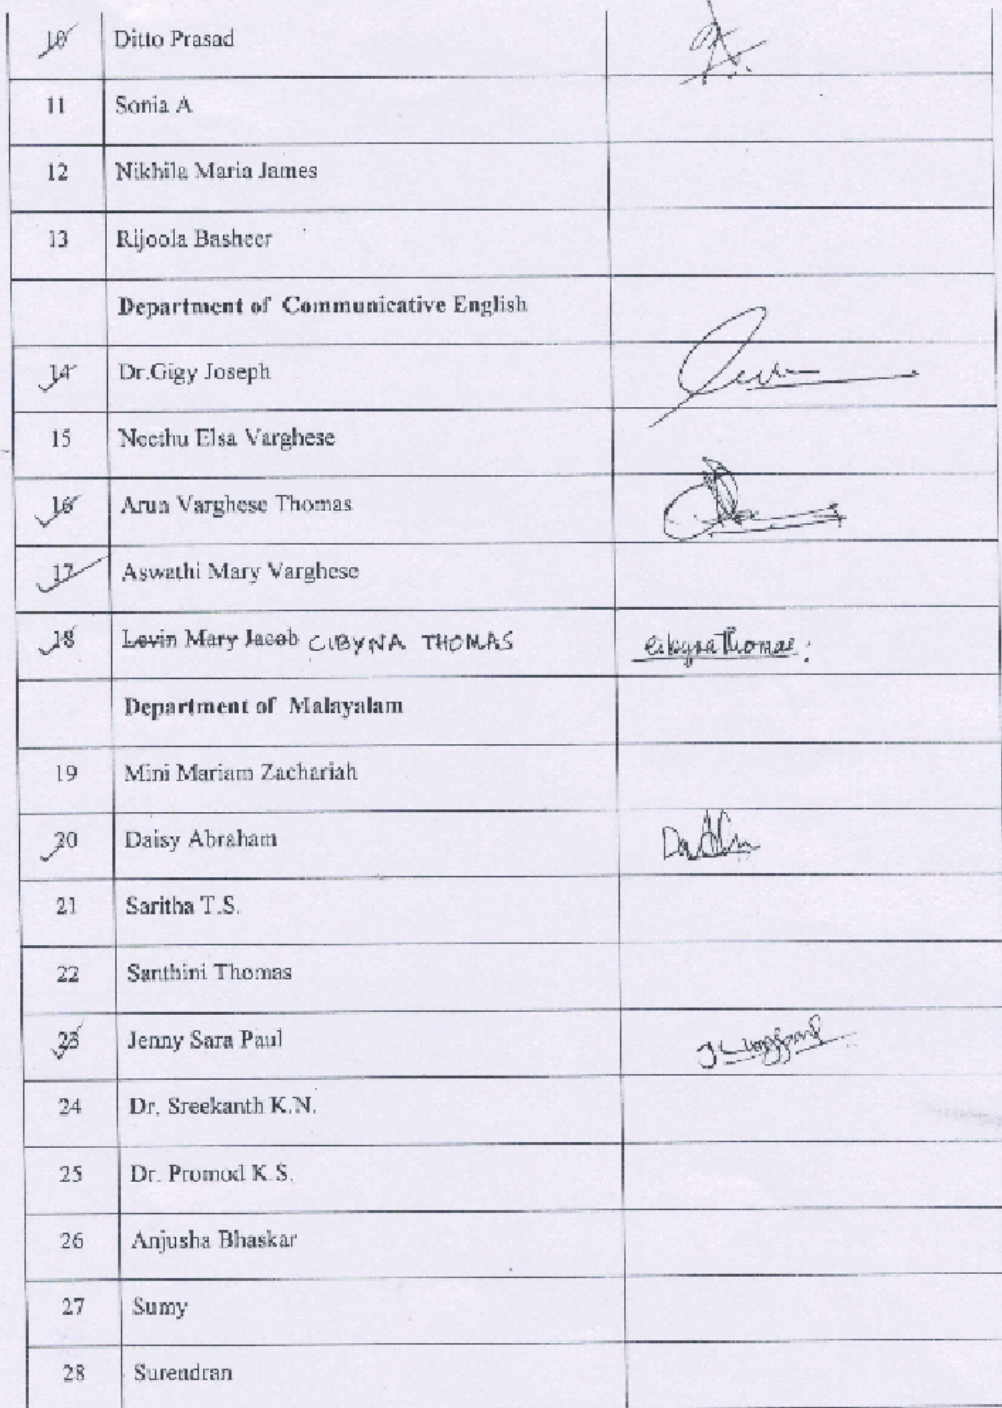 10 Ditto Prasad
11 Sonia A
12 Nikhila Maria James
13 Rijoola Basheer
Department of Communicative English
14 Dr.Gigy Joseph
15 Neethu Elsa Varghese
16 Arun Varghese Thomas
17 Aswathi Mary Varghese
18 Levin Mary Jacob CIBYNA THOMAS Cibyna Thomas.
Department of Malayalam
19 Mini Mariam Zachariah
20 Daisy Abraham
21 Saritha T.S.
22 Santhini Thomas
23 Jenny Sara Paul
24 Dr. Sreekanth K.N.
25 Dr. Promod K.S.
26 Anjusha Bhaskar
27 Sumy
28 Surendran